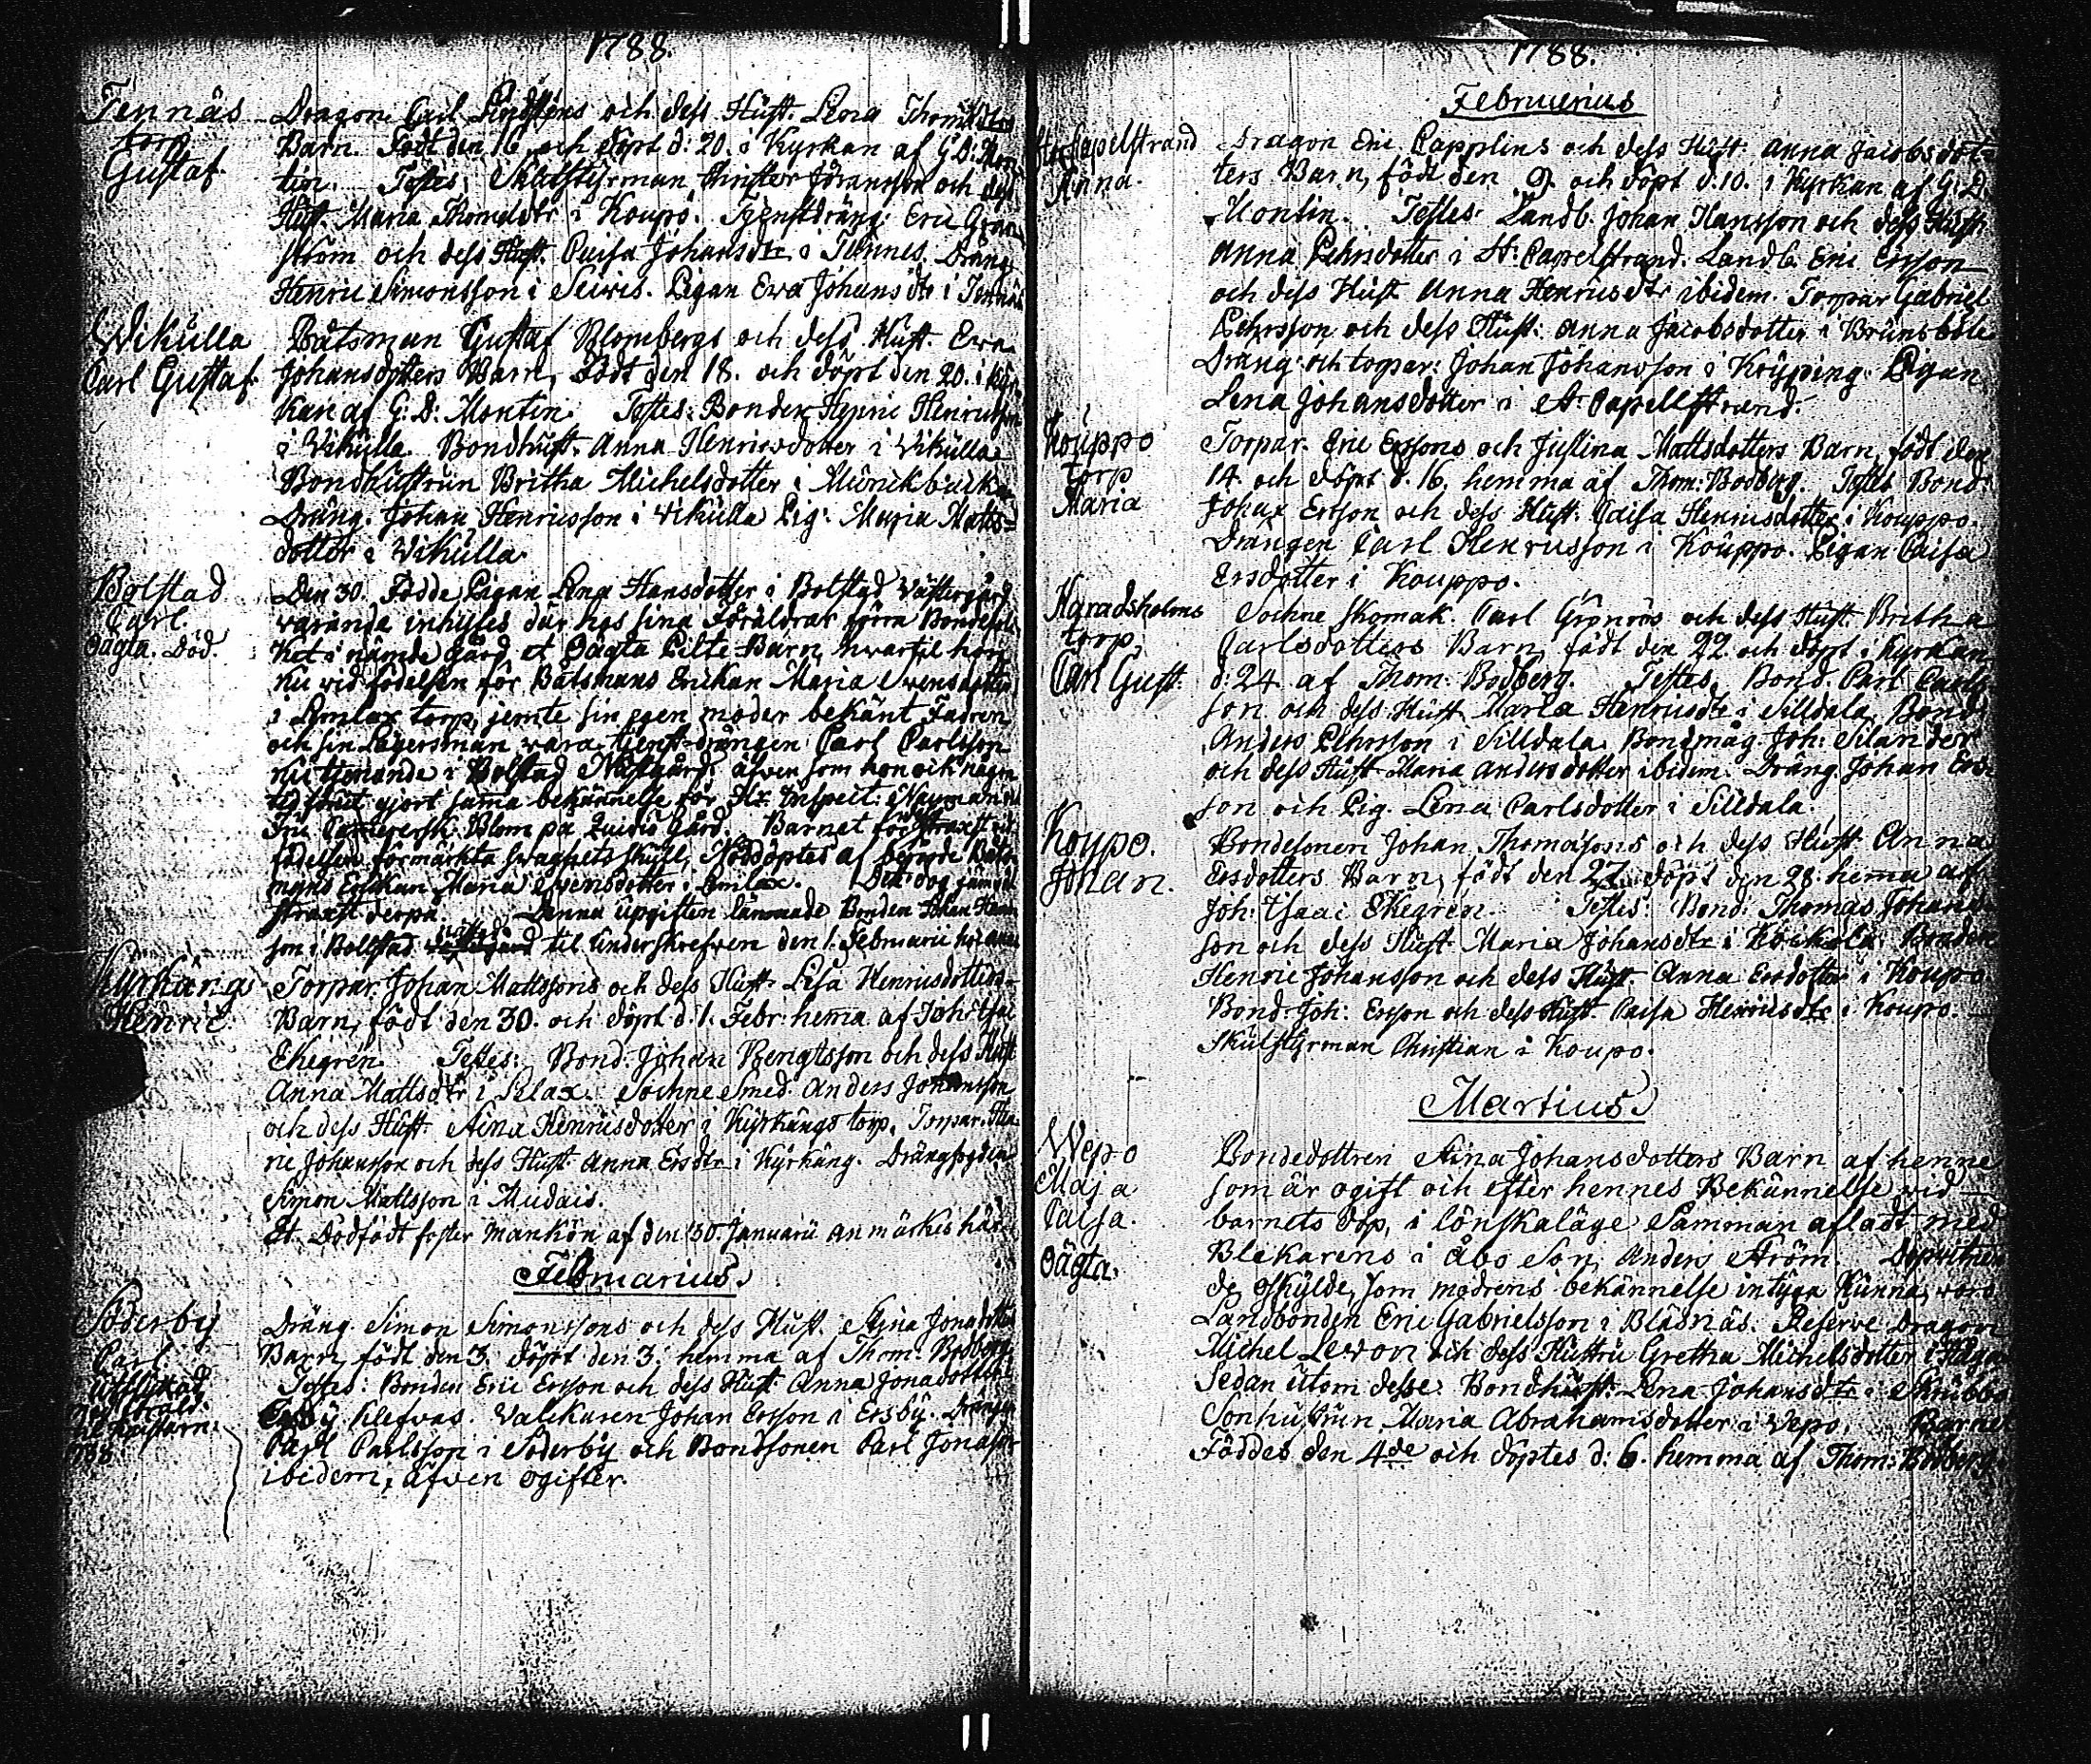 1788.
Tennäs
torp
Gustaf
Dragon Carl och dess Hust. Lena Thomædtrs
Barn. Född den 16 och döpt d: 20. i Kyrkan af G: D: Mon
tin. Testes: Skutstyrman Christer Jöransson och dess
Hust. Maria Thomædtr i Koupo. Eric Grön
ström och dess Hust. Caisa Johansdtr i Tennes. Dräng
Henric Simonsson i Seivis. Pigan Ewa Johansdtr i Tennäs
Wikulla
Carl Gustaf.
Båtsman Gustaf Blombergs och dess Hust. Ewa
Johansdotters Barn, Född den 18. och döpt den 20. i Kyr
kan af G: D: Montin. Testes: Bonden Henric Henricsson
i Wikulla. Bondhust. Anna Henricsdotter i Wikulla
Bondhustrun Britha Michelsdotter i
Dräng. Johan Henricsson i Wikulla Pig: Maria Matts=
dotter i Wikulla
Bolstad
Carl.
oägta. Död.
Den 30. Födde Pigan Lena Hansdotter i Bolstad Wästergård
varande inhyses där hos sina Föräldrar förra Bondefol
ket i nämde gård et Oägta Pilte-Barn, hwartil hon
nu vid födelsen för Båtsmans Enkan Maria Svensdotter
i Lemlax torp, jemte sin egen moder bekänt Fadren
och sin Lägersman vara tjenstedrängen Carl Carlsson
nu tjenande i Bolstad Nästgård äfven som hon ock någon
tid förut gjort samma bekännelse för Hr Inspect: Nauman
Blom på Quidis Gård. Barnet för straxt vid
födelsen förmärkta svaghets skull, Nöddöptes af berörde Båts
mans Enkan Maria Svensdotter i Lemlax. Det dog jämväl
straxt derpå. Denna upgiften lämnade Bonden Johan Hans
son i Bolstad til underskrefven den 1. Februarii
Kyrkäng
Henric
Torpar. Johan Mattssons och dess Hust. Lisa Henricsdotters
Barn, född den 30. och döpt d: 1. Febr: hemma af Joh: Isac
Ekegren. Testes: Bond. Johan Bengtsson och dess Hust
Anna Mattsdtr i Pelax. Sochne smed Anders Johansson
och dess Hust. Stina Henricsdotter i Kyrkängs torp. Torpar. Hen
ric Johansson och dess Hust. Anna Ersdtr i Kyrkäng. Drängfogden
Simon Mattsson i Mudais.
Et Dödfödt foster mankön af den 30. Januarii anmärkes här
Februarius.
Söderby
Carl
Dräng. Simon Simonssons och dess Hust. Stina Jonadotters
Barn, född den 3. döpt den 3. hemma af Thom: Bodberg
Testes: Bonden Eric Ersson och dess Hust. Anna Jonadotter i
Ersby Klefvas. Johan Ersson i Ersby. Drängen
Carl Carlsson i Söderby och Bondsonen Carl Jonasson
ibidem, äfven ogifter.
1788.
Februarius
Capelstrand
Anna.
Dragon Eric Lapplins och dess Hust: Anna Jacobsdot=
ters Barn, född den 9. och döpt d. 10. i Kyrkan af G: D.
Montin. Testes: Landb. Johan Hansson och dess Hust.
Anna Pehrsdotter i St: Capelstrand. Landb. Eric Ersson
och dess Hust Anna Henricsdtr ibidem. Torpar Gabriel
Pehrsson och dess Hust: Anna Jacobsdotter i Brunsböle
Dräng och torpar: Johan Johansson i Köyping. Pigan
Lena Johansdotter i St: Capellstrand.
Kouppo
torp
Maria
Torpar. Eric Ersons och Justina Mattsdotters Barn, född den
14. och döpt d. 16. hemma af Thom: Bodberg. Testes Bond:
Johan Erson och dess Hust: Caisa Henricsdotter i Kouppo.
Drängen Carl Henricsson i Kouppo. Pigan Caisa
Ersdotter i Kouppo.
Haradsholms
torp,
Carl Gust.
Sochne skomak. Carl Grönros och dess Hust. Britha
Carlsdotters Barn, född den 22. och döpt i Kyrkan
d: 24 af Thom: Bodberg. Testes. Bond. Carl Carls
son och dess Hust. Maria Henricsdtr i Silldala, Bond
Anders Pehrsson i Silldala. Bondmåg. Joh: Silander
och dess Hust. Maria Andersdotter ibidem. Dräng Johan Ers
son och Pig. Lena Carlsdotter i Silldala.
Koupo.
Johan.
Bondesonen Johan Thomassons och dess Hust Anna
Ersdotters Barn, född den 27. döpt den 28. hemma af
Joh: Isaac Ekegren. Testes: Bond: Thomas Johans
son och dess Hust Maria Johansdtr i Bonden
Henric Johansson och dess Hust. Anna Ersdotter i Koupo
Bond. Joh: Ersson och dess Hust. Caisa Henricsdtr i Koupo.
Skutstyrman Christian i Koupo.
Martius.
Wepo
Maja
Caisa.
oägta.
Bondedottren Stina Johansdotters Barn af henne
som är ogift och efter hennes Bekännelse vid
barnets dop, i lönskaläge Samman afladt med
Blekarens i Åbo Son, Anders Ström.
de skylde, som modrens bekännelse intyga kunna, woro
Landbonden Eric Gabrielsson i Bläsnäs. Reserve Dragon
Michel Lewon och dess Hustru Gretha Michelsdotter i
Sedan utom desse: Bondhust: Lena Johansdtr i
Sonhustrun Maria Abrahamsdotter i Vepo. Barnet
Föddes den 4de och döptes d: 6. hemma af Thom: Bodberg.